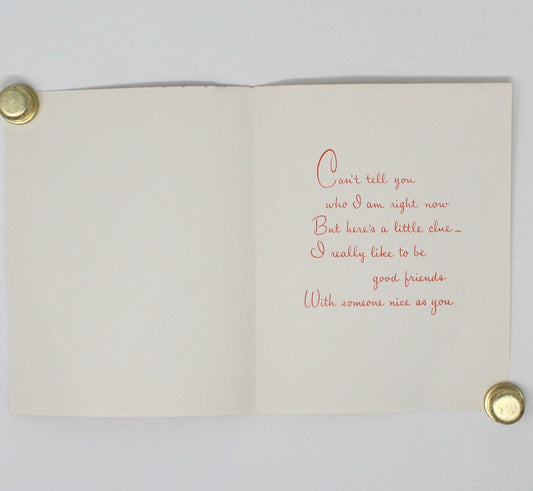 Can't tell you
who I am right now
But here's a little clue—
I really like to be
good friends
With someone nice as you